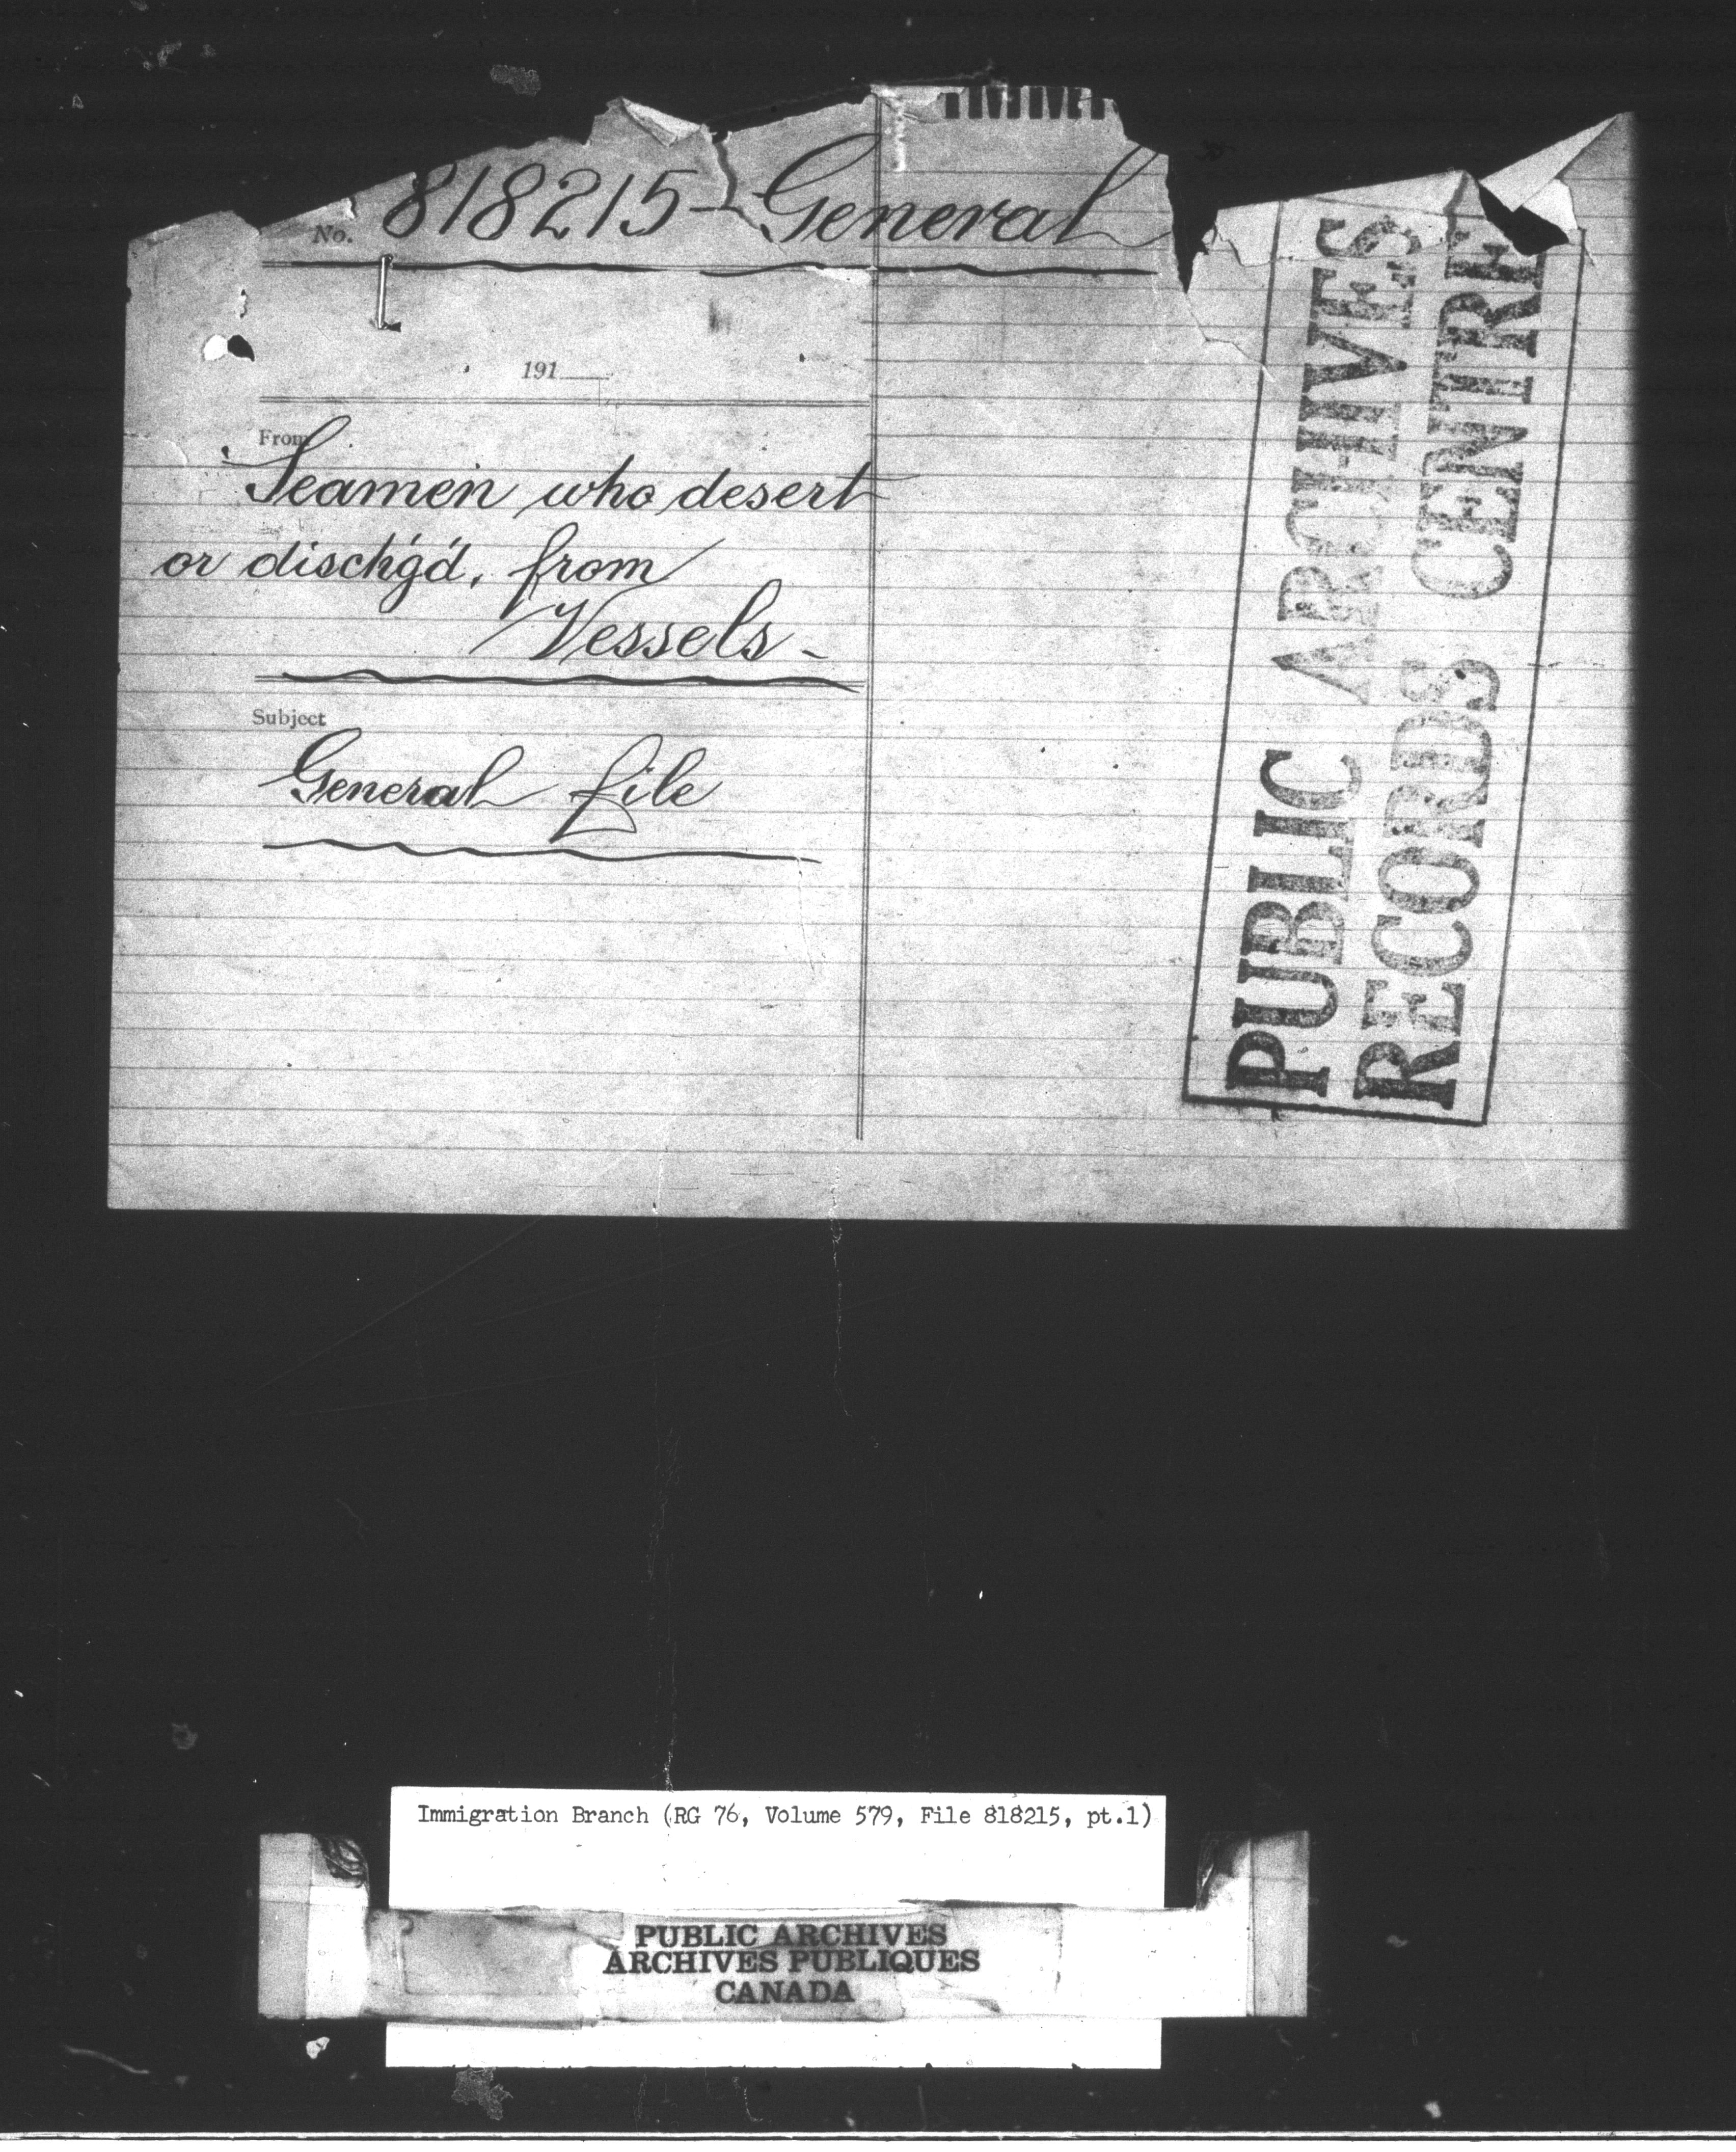 No. 818215 - General
191
From
Seamen who desert
or disch'g'd, from
Vessels -
Subject
General file
PUBLIC ARCHIVES
RECORDS CENTRE
Immigration Branch (RG 76, Volume 579, File 818215, pt.1)
PUBLIC ARCHIVES
ARCHIVES PUBLIQUES
CANADA